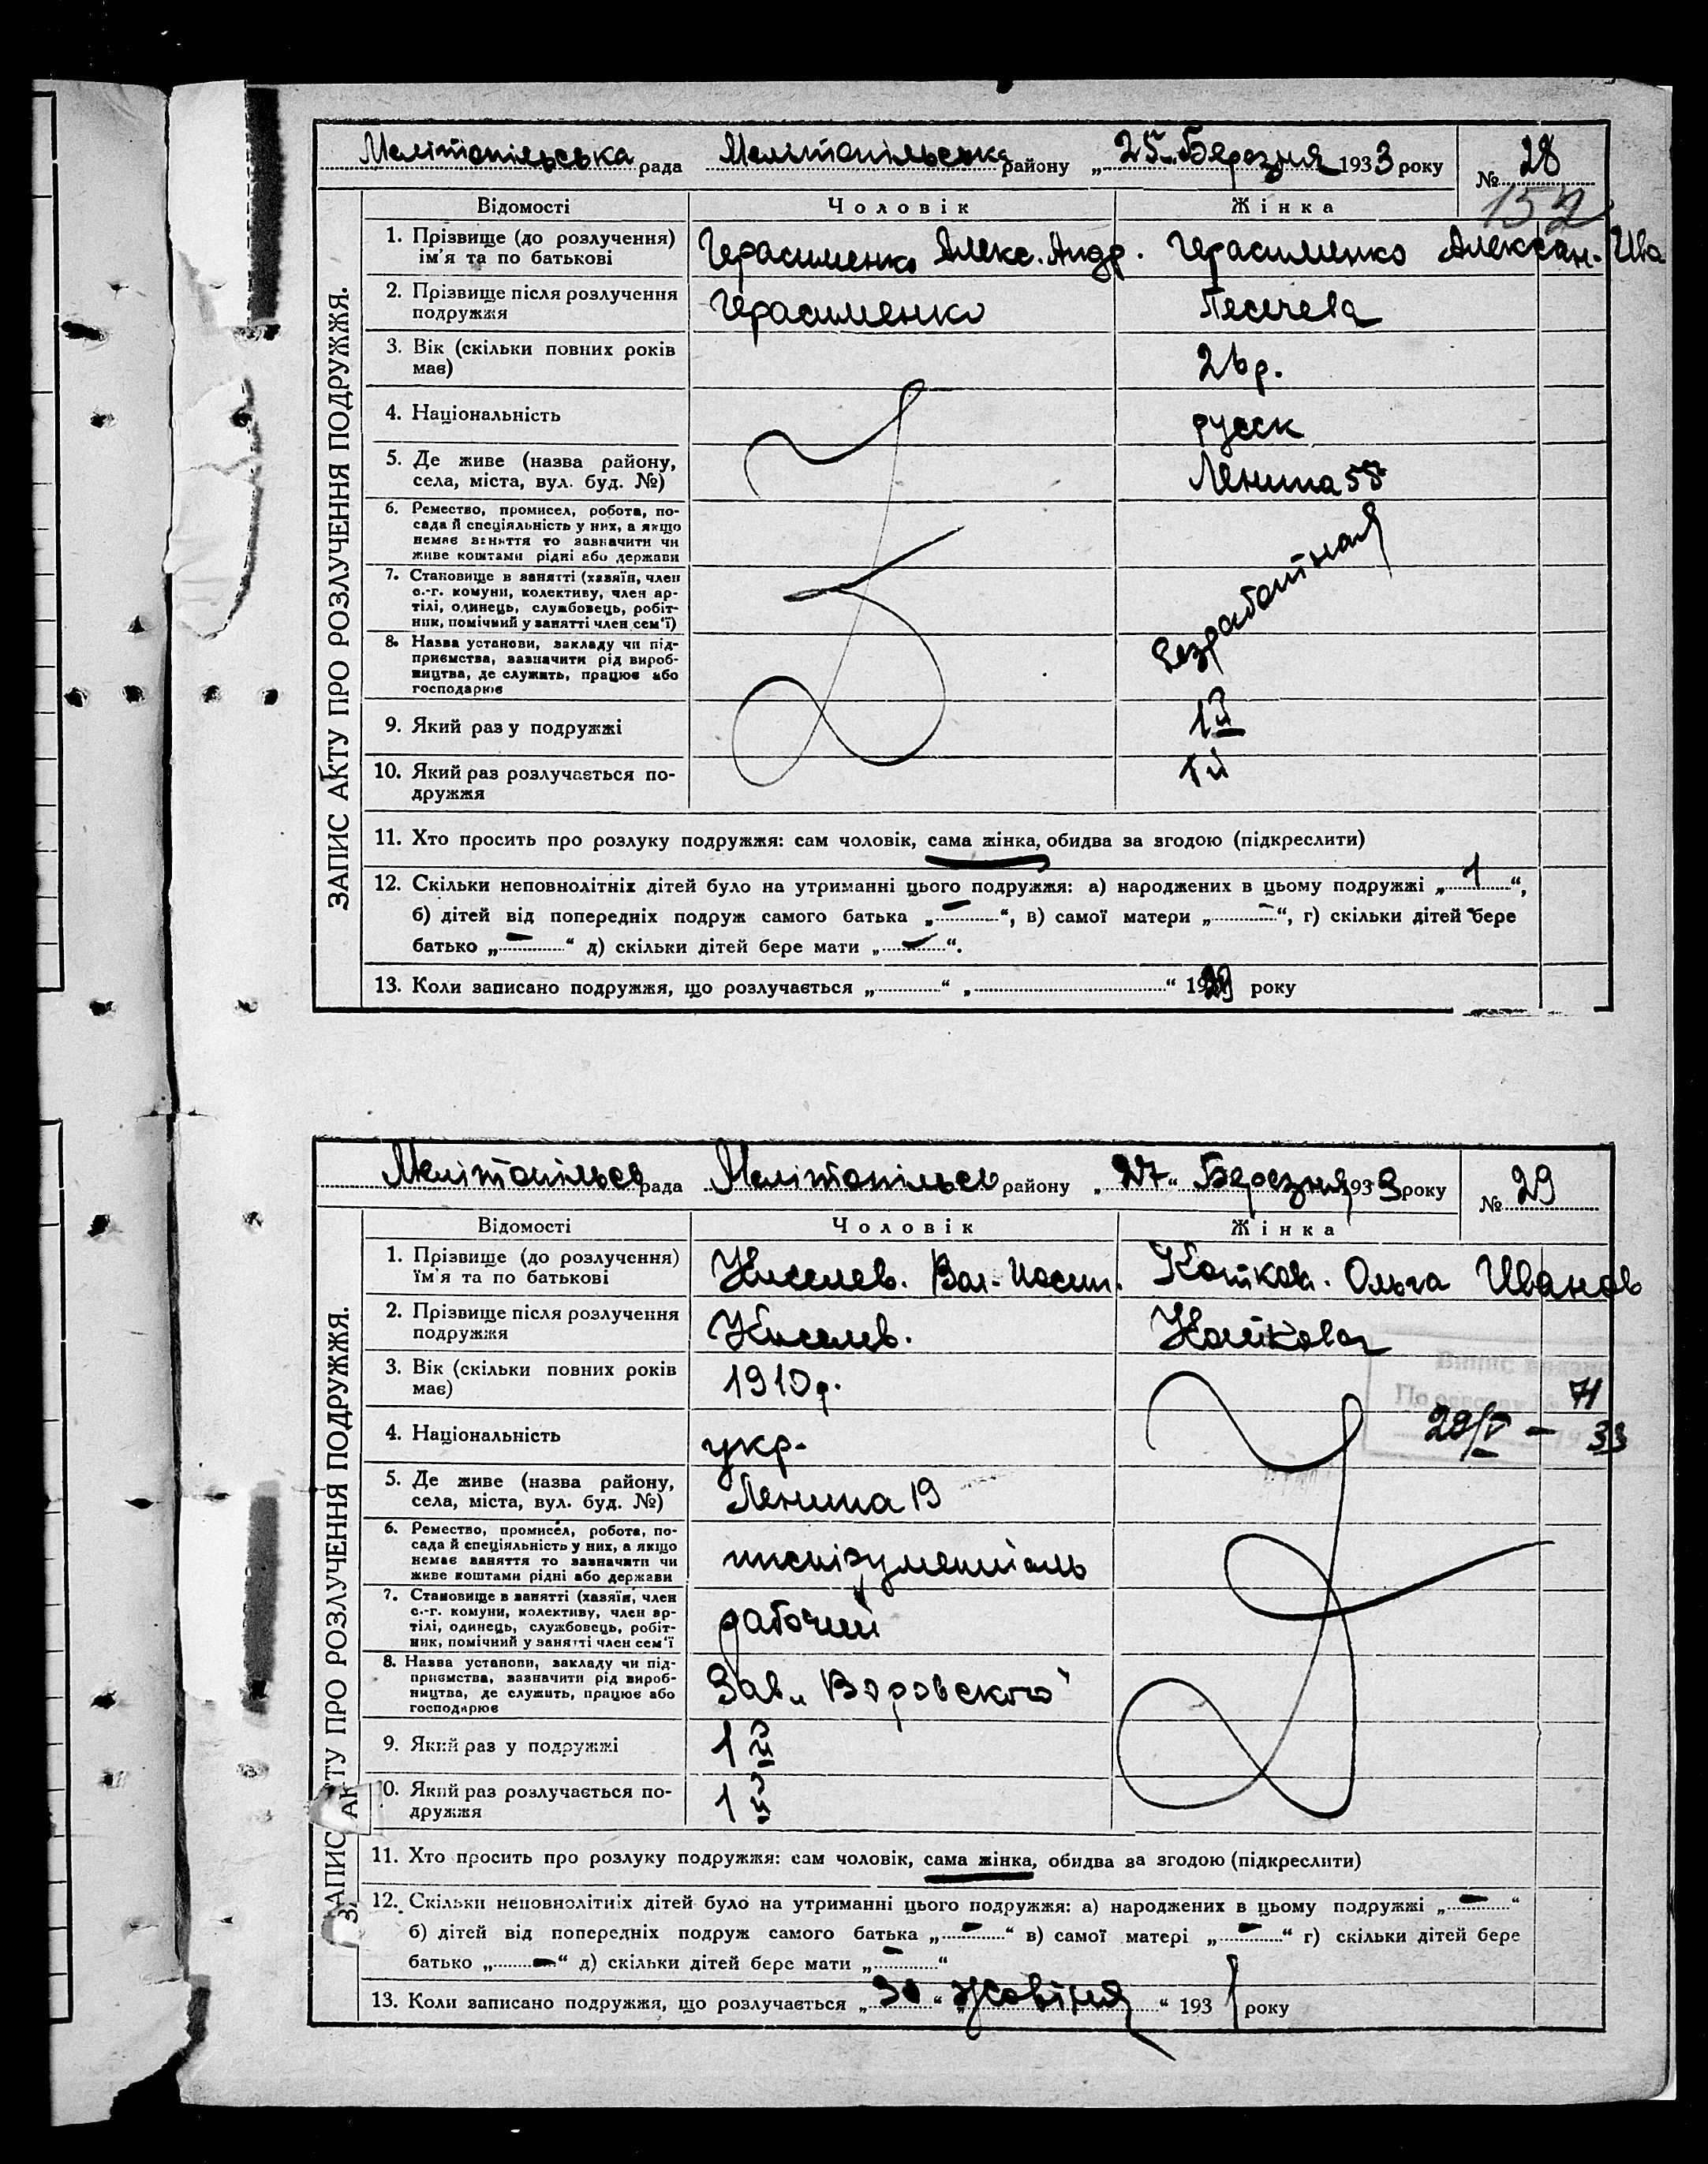 ЗАПИС АКТУ ПРО РОЗЛУЧЕННЯ ПОДРУЖЖЯ.
Мелітопільська рада Мелітопільська району „25“ Березня 1933 року № 28
152
Відомості Чоловік Жінка
1. Прізвище (до розлучення) ім'я та по батькові Герасименко Алекс. Андр. Герасименко Алексан. Ива
2. Прізвище після розлучення подружжя Герасименко Песечева
3. Вік (скільки повних років має) 26 р.
4. Національність русск
5. Де живе (назва району, села, міста, вул. буд. №) Ленина 55
6. Ремество, промисел, робота, посада й спеціяльність у них, а якщо немає заняття то зазначити чи живе коштами рідні або держави
7. Становище в занятті (хазяїн, член с.-г. комуни, колективу, член артілі, одинець, службовець, робітник, помічний у занятті член сем'ї) безработная
8. Назва установи, закладу чи підприємства, зазначити рід виробництва, де служить, працює або господарює
9. Який раз у подружжі 1й
10. Який раз розлучається подружжя 1й
11. Хто просить про розлуку подружжя: сам чоловік, сама жінка, обидва за згодою (підкреслити)
12. Скільки неповнолітніх дітей було на утриманні цього подружжя: а) народжених в цьому подружжі „1“,
б) дітей від попередніх подруж самого батька „-“, в) самої матери „-“, г) скільки дітей бере
батько „-“ д) скільки дітей бере мати „-“.
13. Коли записано подружжя, що розлучається „ “ „ “ 1929 року
ЗАПИС АКТУ ПРО РОЗЛУЧЕННЯ ПОДРУЖЖЯ.
Мелітопільсь рада Мелітопільсь району „27“ Березня 1933 року № 29
Відомості Чоловік Жінка
1. Прізвище (до розлучення) їм'я та по батькові Киселев. Вас. Иосип. Котков. Ольга Иванов
2. Прізвище після розлучення подружжя Киселев. Коткова
3. Вік (скільки повних років має) 1910 р.
71
28/V – 33
4. Національність укр.
5. Де живе (назва району, села, міста, вул. буд. №) Ленина 19
6. Ремество, промисел, робота, посада й спеціяльність у них, а якщо немає заняття то зазначити чи живе коштами рідні або держави инструменталь
7. Становище в занятті (хазяїн, член с.-г. комуни, колективу, член артілі, одинець, службовець, робітник, помічний у занятті член сем'ї рабочий
8. Назва установи, закладу чи підприємства, зазначити рід виробництва, де служить, працює або господарює Зав. „Воровского“
9. Який раз у подружжі 1й
10. Який раз розлучається подружжя 1й
11. Хто просить про розлуку подружжя: сам чоловік, сама жінка, обидва за згодою (підкреслити)
12. Скільки неповнолітніх дітей було на утриманні цього подружжя: а) народжених в цьому подружжі „-“
б) дітей від попередніх подруж самого батька „-“ в) самої матері „-“ г) скільки дітей бере
батько „-“ д) скільки дітей бере мати „-“
13. Коли записано подружжя, що розлучається „30“ „Жовтня“ 1931 року